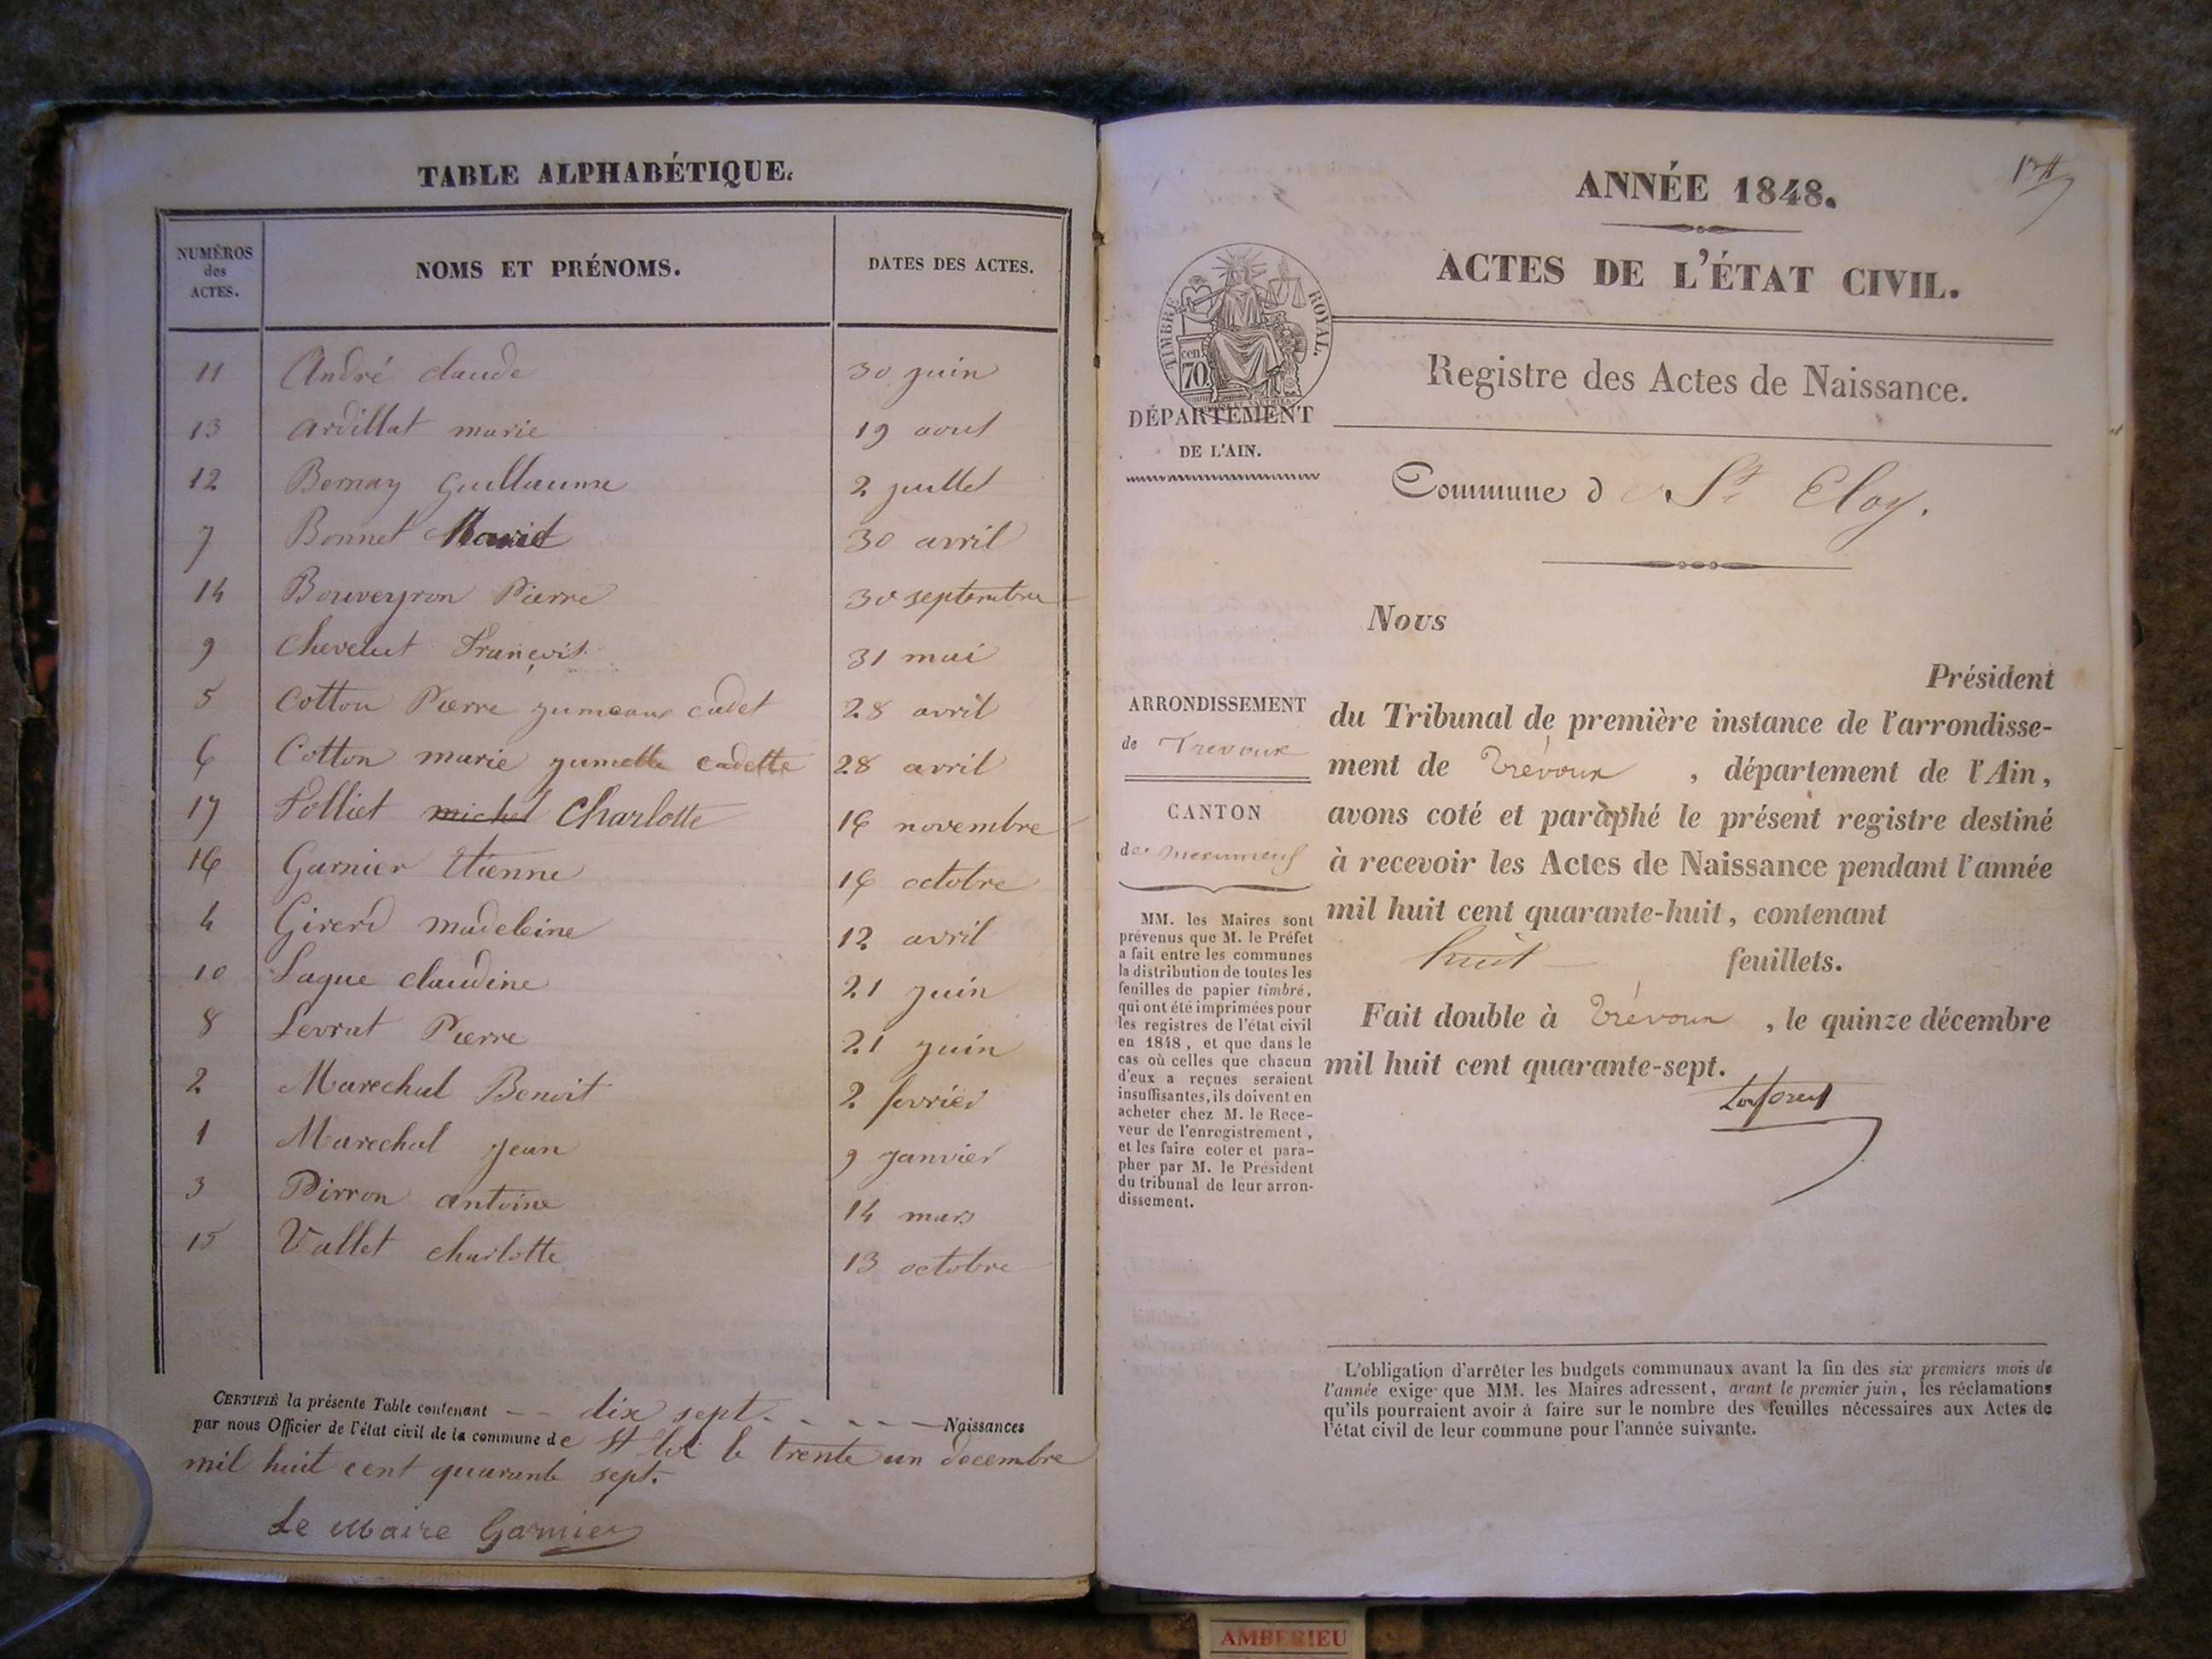 TABLE ALPHABÉTIQUE.
NUMÉROS des ACTES. NOMS ET PRÉNOMS. DATES DES ACTES.
11 André claude 30 juin
13 Ardillat marie 19 aout
12 Bernay Guillaume 2 juillet
7 Bonnet 30 avril
14 Bouveyron Pierre 30 septembre
9 Chevelut François 31 mai
5 Cotton Pierre jumeaux cadet 28 avril
6 Cotton marie jumelle cadette 28 avril
17 Folliet michel Charlotte 16 novembre
16 Garnier Etienne 16 octobre
4 Girerd madeleine 12 avril
10 Lague claudine 21 juin
8 Levrat Pierre 21 juin
2 Marechal Benoit 2 fevrier
1 Marechal Jean 9 janvier
3 Pirron antoine 14 mars
15 Vallet charlotte 13 octobre
CERTIFIÉ la présente Table contenant dix sept Naissances
par nous Officier de l'état civil de la commune de St loi le trente un decembre
mil huit cent quarante sept.
Le Maire Garnier
ANNÉE 1848.
ACTES DE L'ÉTAT CIVIL.
TIMBRE ROYAL.
cen. 70.
DÉPARTEMENT
DE L'AIN.
Registre des Actes de Naissance.
Commune d St Eloy.
ARRONDISSEMENT
de Trevoux
CANTON
de meximieux
MM. les Maires sont
prévenus que M. le Préfet
a fait entre les communes
la distribution de toutes les
feuilles de papier timbré,
qui ont été imprimées pour
les registres de l'état civil
en 1848, et que dans le
cas où celles que chacun
d'eux a reçues seraient
insuffisantes, ils doivent en
acheter chez M. le Rece-
veur de l'enregistrement,
et les faire coter et para-
pher par M. le Président
du tribunal de leur arron-
dissement.
Nous
Président
du Tribunal de première instance de l'arrondisse-
ment de Trévoux, département de l'Ain,
avons coté et paraphé le présent registre destiné
à recevoir les Actes de Naissance pendant l'année
mil huit cent quarante-huit, contenant
huit feuillets.
Fait double à Trévoux, le quinze décembre
mil huit cent quarante-sept.
L'obligation d'arrêter les budgets communaux avant la fin des six premiers mois de
l'année exige que MM. les Maires adressent, avant le premier juin, les réclamations
qu'ils pourraient avoir à faire sur le nombre des feuilles nécessaires aux Actes de
l'état civil de leur commune pour l'année suivante.
AMBERIEU